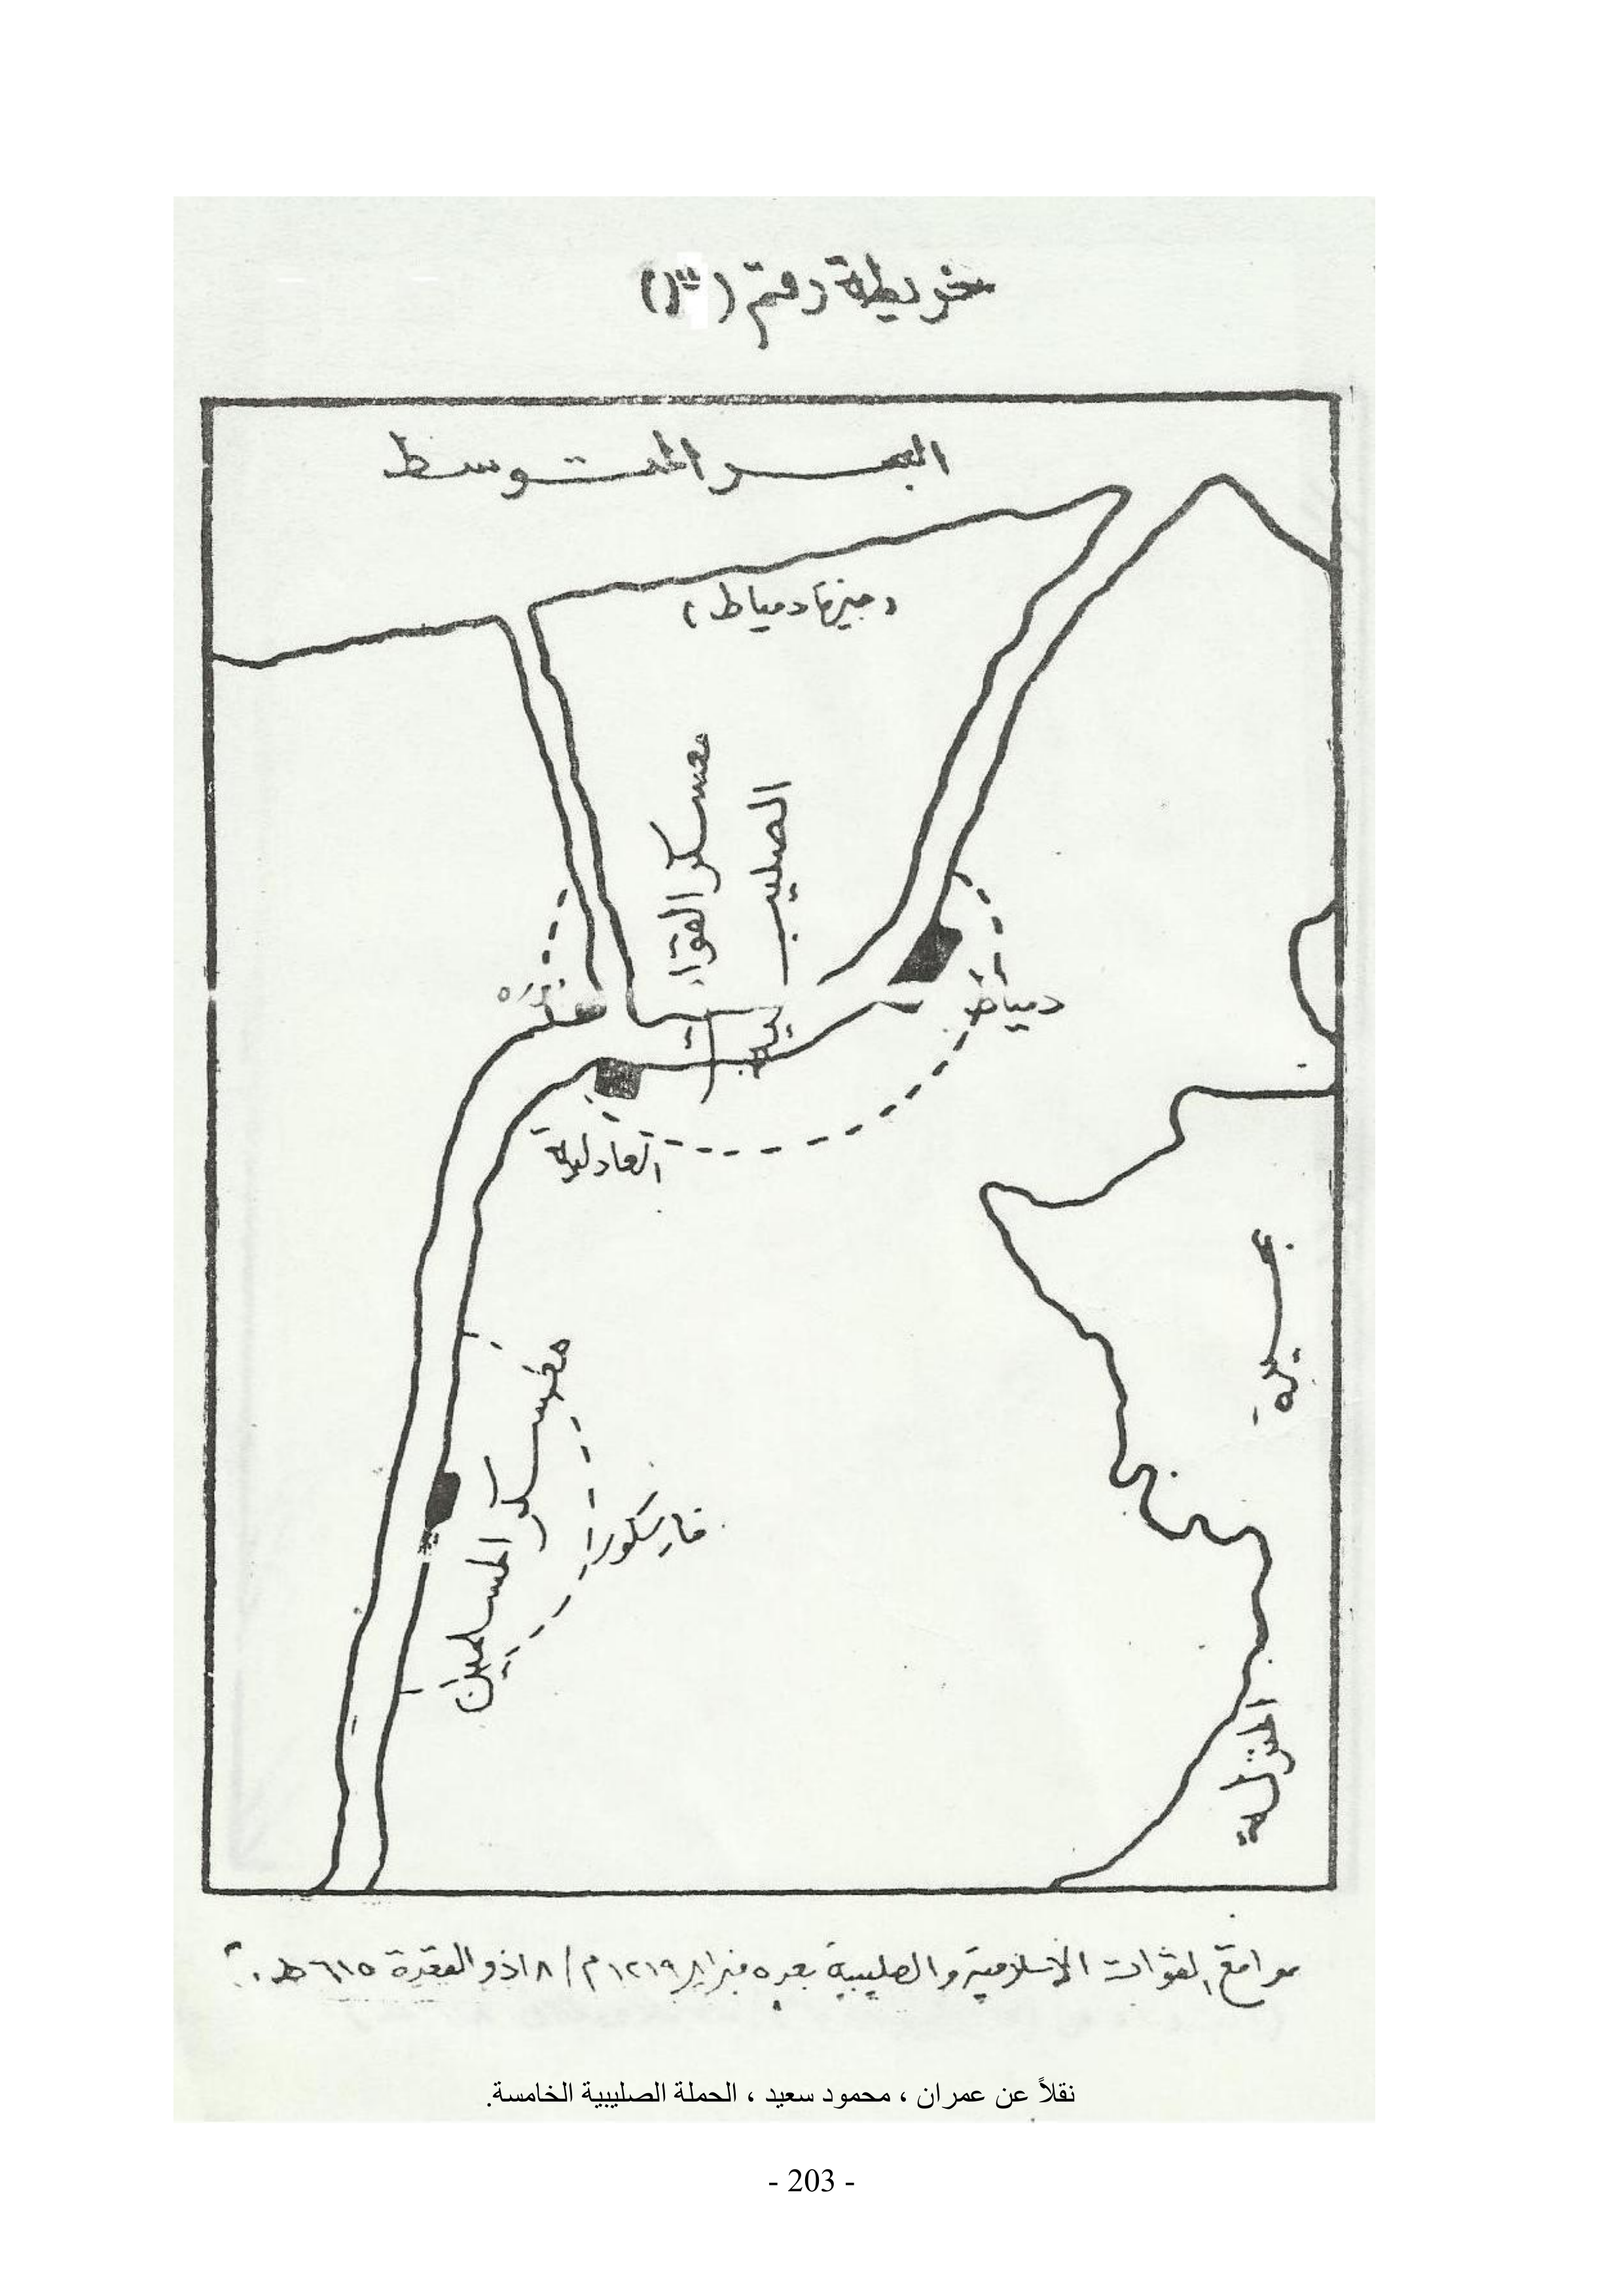 خريطة رقم (٣)
البحر المتوسط
(جيزة دمياط)
معسكر القوات
الصليبية
دمياط
العادلية
معسكر المسلمين
فارسكور
بحيرة
المنزلة
مواقع القوات الاسلامية والصليبية بعد ٥ فبراير ١٢١٩م / ١٨ ذو القعدة ٦١٥ هـ.
نقلاً عن عمران ، محمود سعيد ، الحملة الصليبية الخامسة.
- 203 -